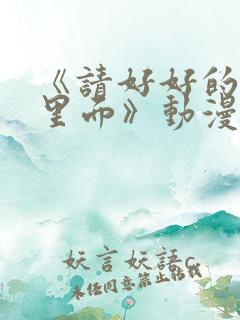 《請好好的
里面》動漫
妖言妖語c
未任同意禁止轉載